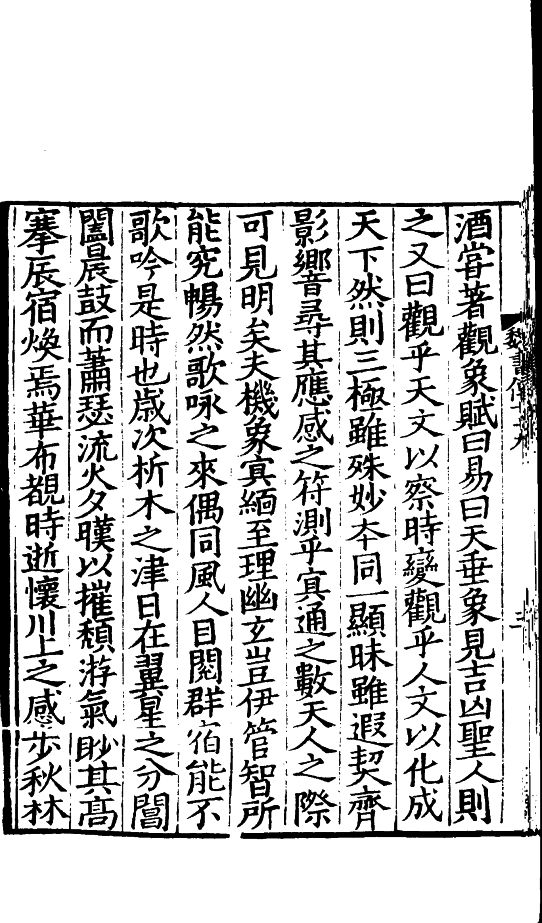 魏書傳七十九
三
酒嘗著觀象賦曰易曰天垂象見吉凶聖人則
之又曰觀乎天文以察時變觀乎人文以化成
天下然則三極雖殊妙夲同一顯昧雖遐契齊
影響尋其應感之符測乎冥通之數天人之際
可見明矣夫機象冥緬至理幽玄豈伊管智所
能究暢然歌咏之來偶同風人目閱群宿能不
歌吟是時也歲次析木之津日在翼星之分閶
闔晨鼓而蕭瑟流火夕暵以摧頹游氣眇其高
搴辰宿煥焉華布覩時逝懷川上之感步秋林